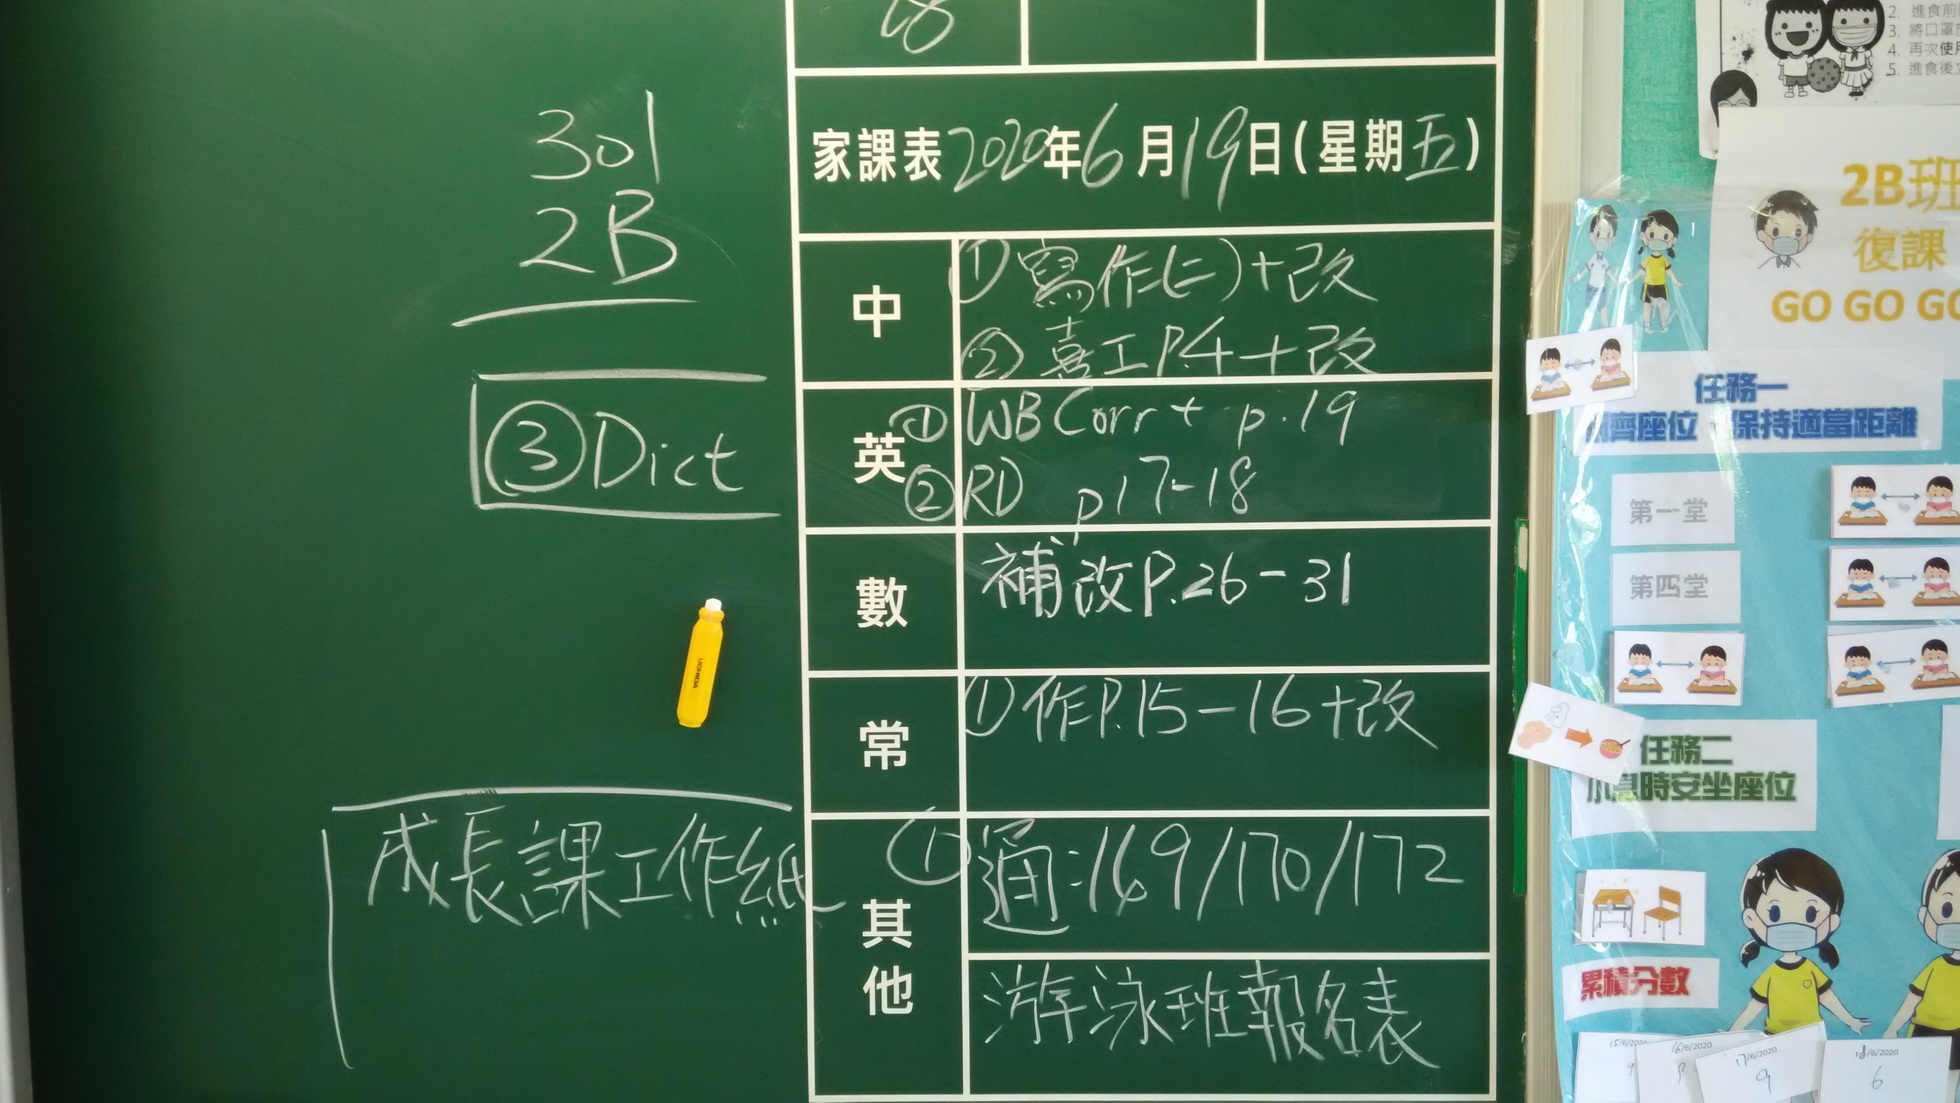 301
2B
③Dict
成長課工作紙
18
家課表2020年6月19日(星期五)
中
①寫作(二)+改
②喜工P.4+改
英
①WB Corr + p.19
②RD p17-18
數
補改P.26-31
常
①作P.15-16+改
其他
①通:169/170/172
游泳班報名表
2. 進食前
3. 將口罩
4. 再次使用
5. 進食後
2B班
復課
GO GO GO
任務一
齊座位 保持適當距離
第一堂
第四堂
任務二
小息時安坐座位
累積分數
15/6/2020
9
16/6/2020
17/6/2020
9
18/6/2020
6